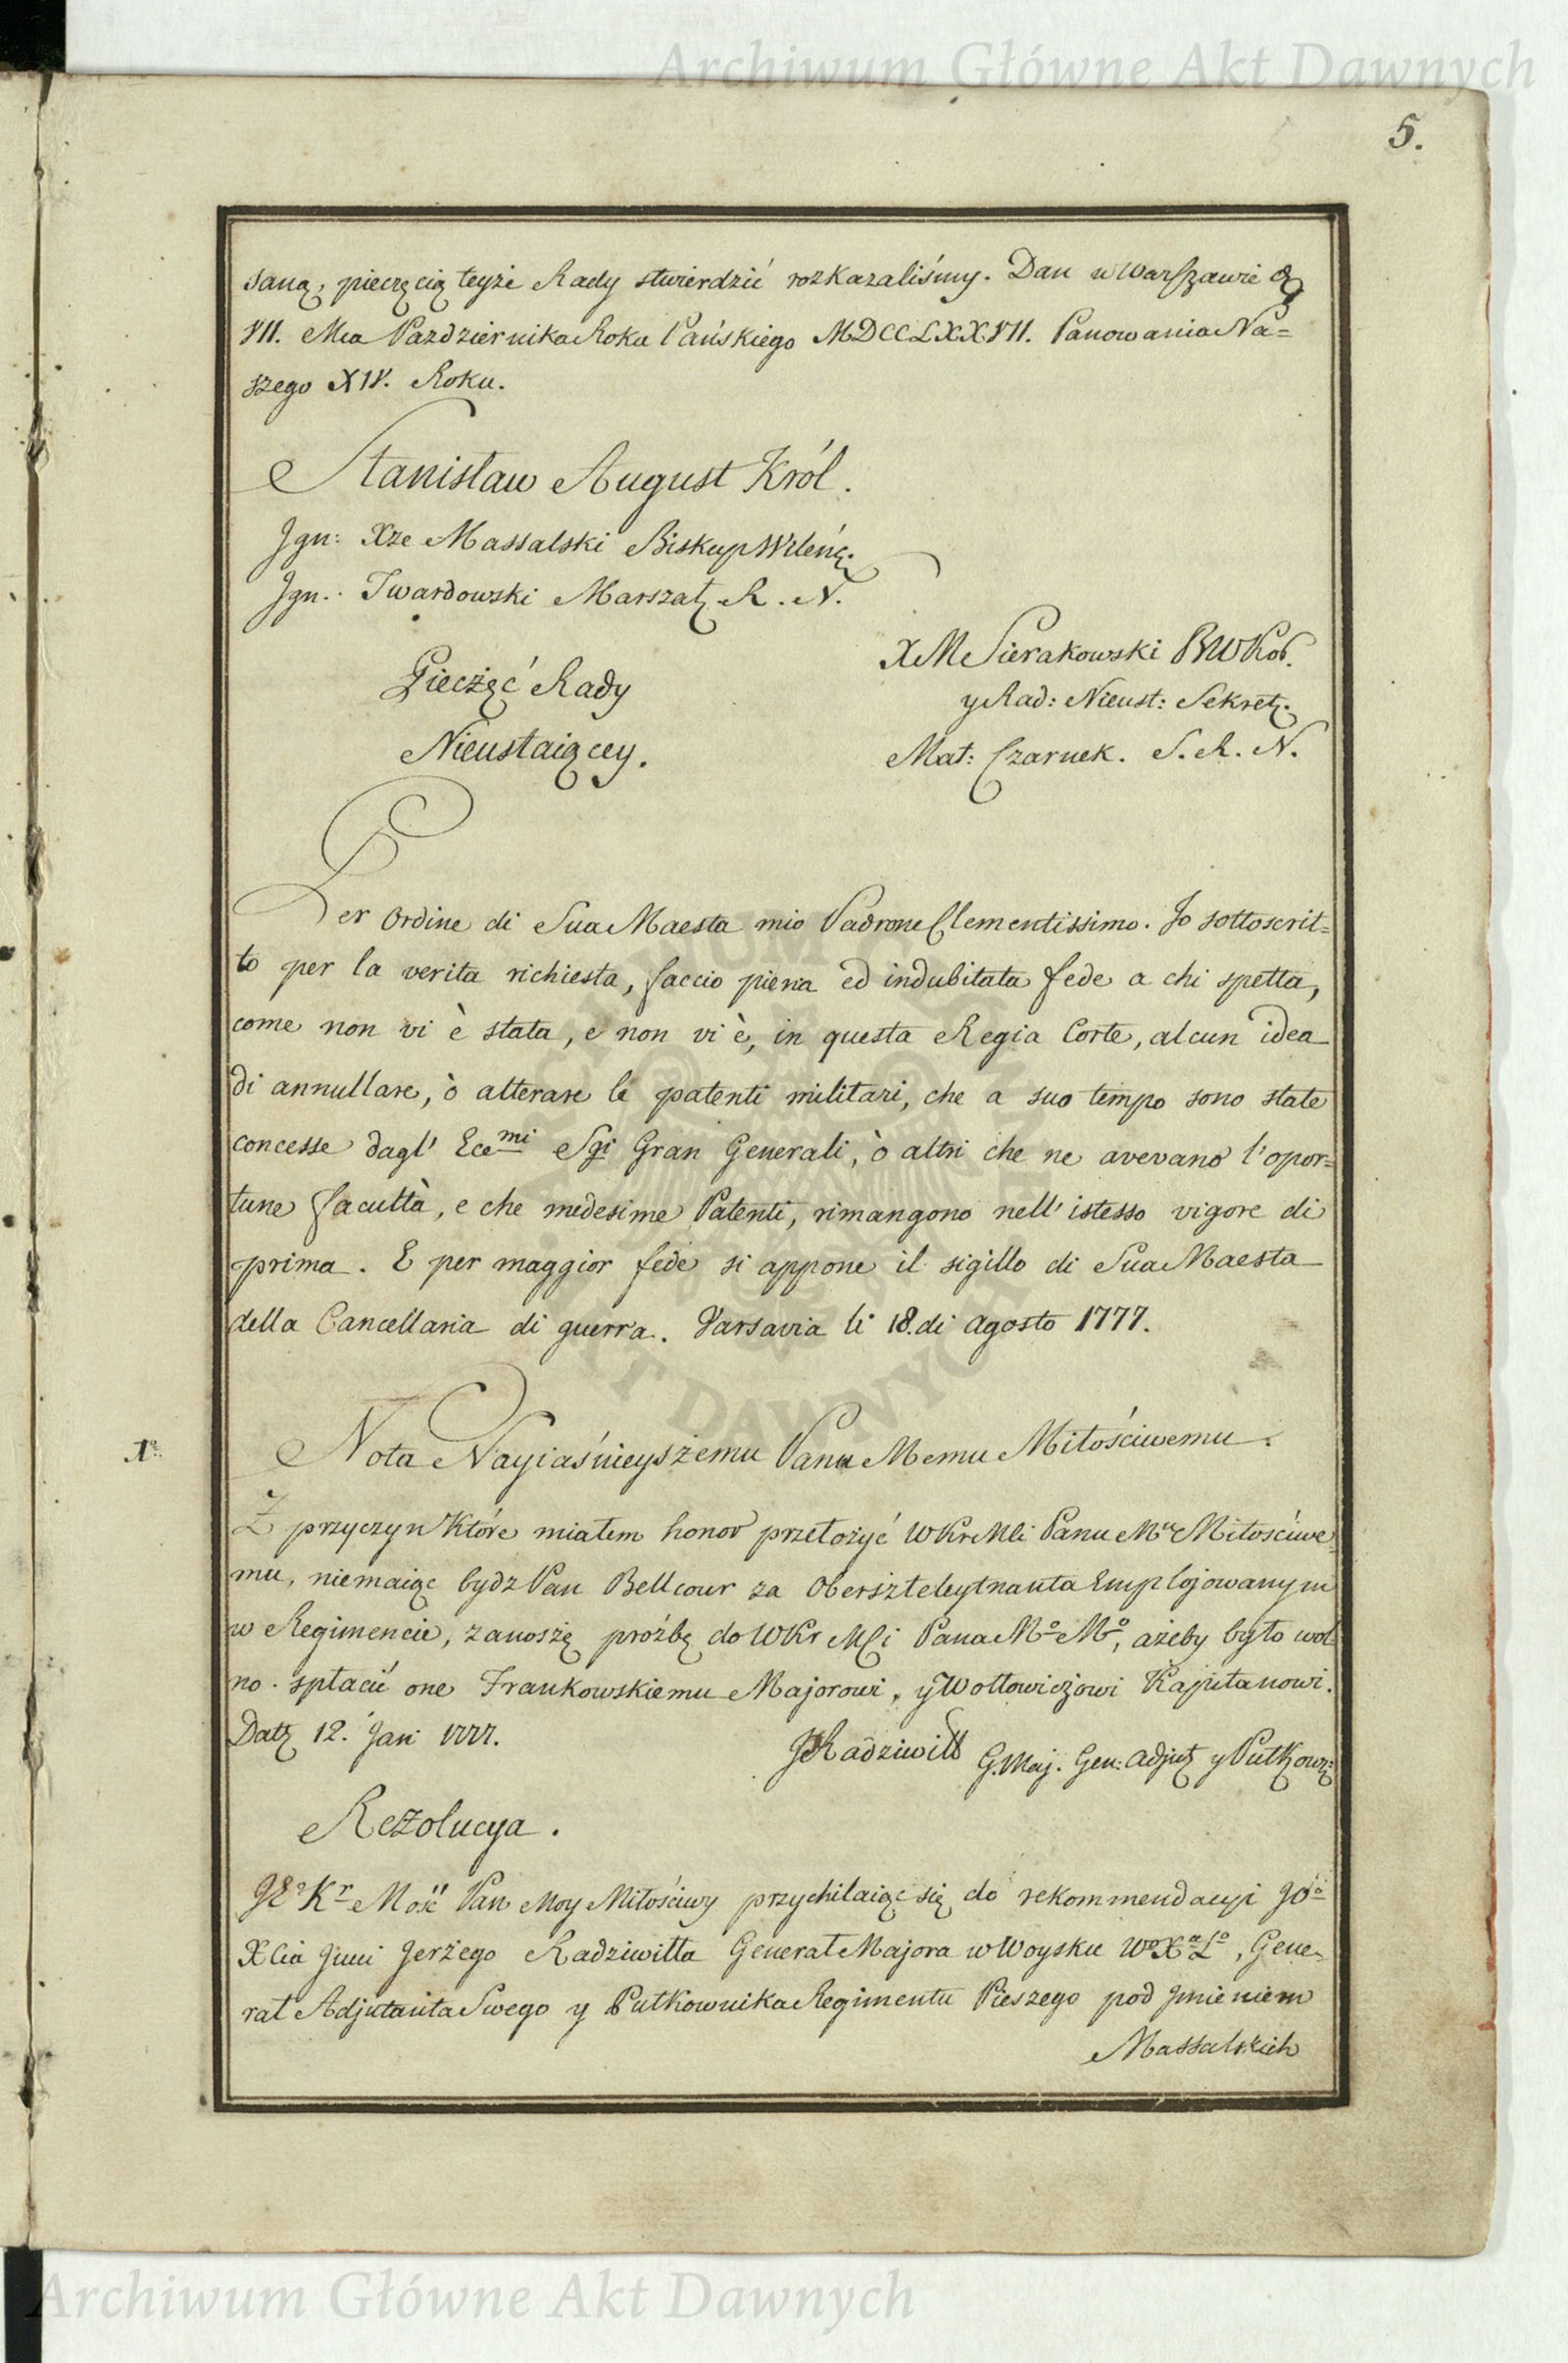 Archiwum Główne Akt Dawnych
5.
saną, pieczęcią teyże Rady stwierdzić rozkazaliśmy. Dan w Warszawie
VII. Mca Pazdziernika Roku Pańskiego MDCCLXXVII. Panowania Na=
szego XIV. Roku.
Stanisław August Król.
Jgn: Xże Massalski Biskup Wileńs.
Jgn: Twardowski Marszał. R. N.
X M Sierakowski
Pieczęć Rady
y Rad: Nieust: Sekret.
Nieustaiącey.
Mat: Czarnek. S. R. N.
Per Ordine di Sua Maesta mio Padrone Clementissimo. Jo sottoscrit=
to per la verita richiesta, faccio piena ed indubitata fede a chi spetta,
come non vi è stata, e non vi è, in questa Regia Corte, alcun idea
di annullare, ò alterare le patenti militari, che a suo tempo sono state
concesse dagl' Ece.mi Sgi Gran Generali, ò altri che ne avevano l'opor=
tune facultà, e che medesime Patenti, rimangono nell' istesso vigore di
prima. E per maggior fede si appone il sigillo di Sua Maesta
della Cancellaria di guerra. Varsavia li 18. di Agosto 1777.
Nota Nayiaśnieyszemu Panu Memu Miłościwemu.
Z przyczyn które miałem honor przełożyć WKrMći Panu Mu Miłościwe
mu, niemaiąc bydz Pan Bellcour za Oberszteleytnanta Emplojowanym
w Regimencie, zanoszę proźbę do WKr Mći Pana Mo Mo, ażeby było wol
no. spłacić one Frankowskiemu Majorowi, y Wołłowiczowi Kapitanowi.
Dat 12. Jan 1777.
JRadziwiłł G. Maj. Gen: Adjut y Pułkow:
Rezolucya.
JEo Kr Mość Pan Moy Miłościwy przychilaiąc się do rekommendacyi JO
Xcia Jmci Jerzego Radziwiłła Generał Majora w Woysku Wo Xa Lo, Gene-
rał Adjutanta Swego y Pułkownika Regimentu Pieszego pod Jmieniem
Massalskich
Archiwum Główne Akt Dawnych